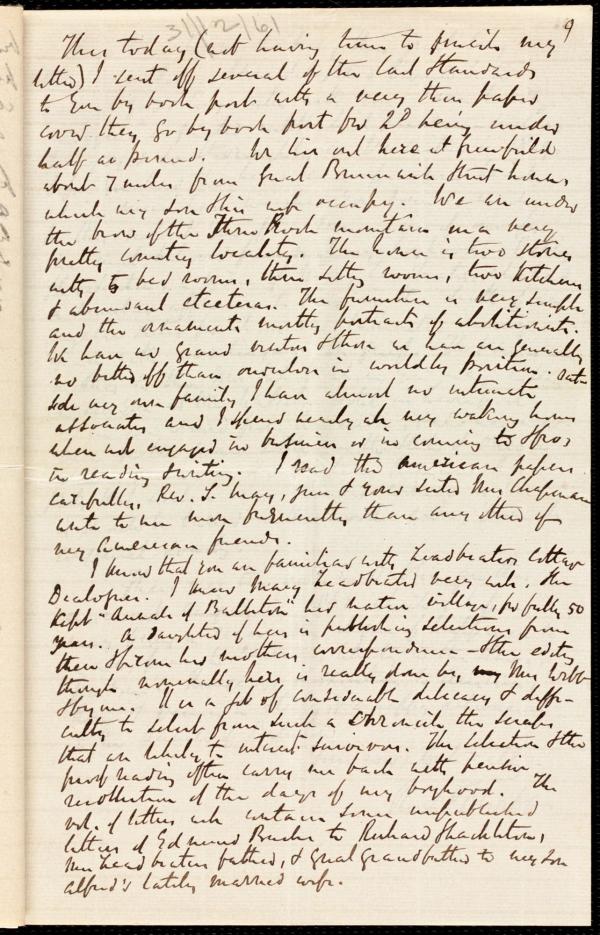 31/12/61
9
Thus today (not having time to finish my
letter) I sent off several of the last Standards
to you by book post with a very thin paper
cover they go by book post for 2d being under
half a pound. We live out here at Greenfield
about 7 miles from Great Brunswick Street house,
which my son & his wife occupy. We are under
the brow of the Three Rock mountain in a very
pretty country locality. The house is two stories
with 6 bed rooms, three sitting rooms, two kitchens
& abundant etceteras. The furniture is very simple
and the ornaments mostly portraits of abolitionists.
We have no grand visitors & those we have are generally
no better off than ourselves in worldly position. Out-
side my own family I have almost no intimate
associates and I spend nearly all my waking hours
when not engaged in business or in coming to & fro,
in reading & writing. I read the American papers
carefully. Rev. S. May, jun & your sister Mrs Chapman
write to me more frequently than any other of
my American friends.
I know that you are familiar with Leadbeater's Cottage
Dialogues. I knew Mary Leadbeater very well. She
kept "Annals of Ballitore" her native village, for fully 50
years. A daughter of hers is publishing selections from
them & from her mother's correspondence - & the editing
though nominally hers is really done by my Mrs Webb
& by me. It is a job of considerable delicacy & diffi-
culty to select from such a chronicle the scraps
that are likely to interest survivors. The selection & the
proof reading often carry me back with pensive
recollection of the days of my boyhood. The
vol. of letters will contain some unpublished
letters of Edmund Burke to Richard Shackleton,
Mrs Leadbeater's father, & great grandfather to my son
Alfred's lately married wife.